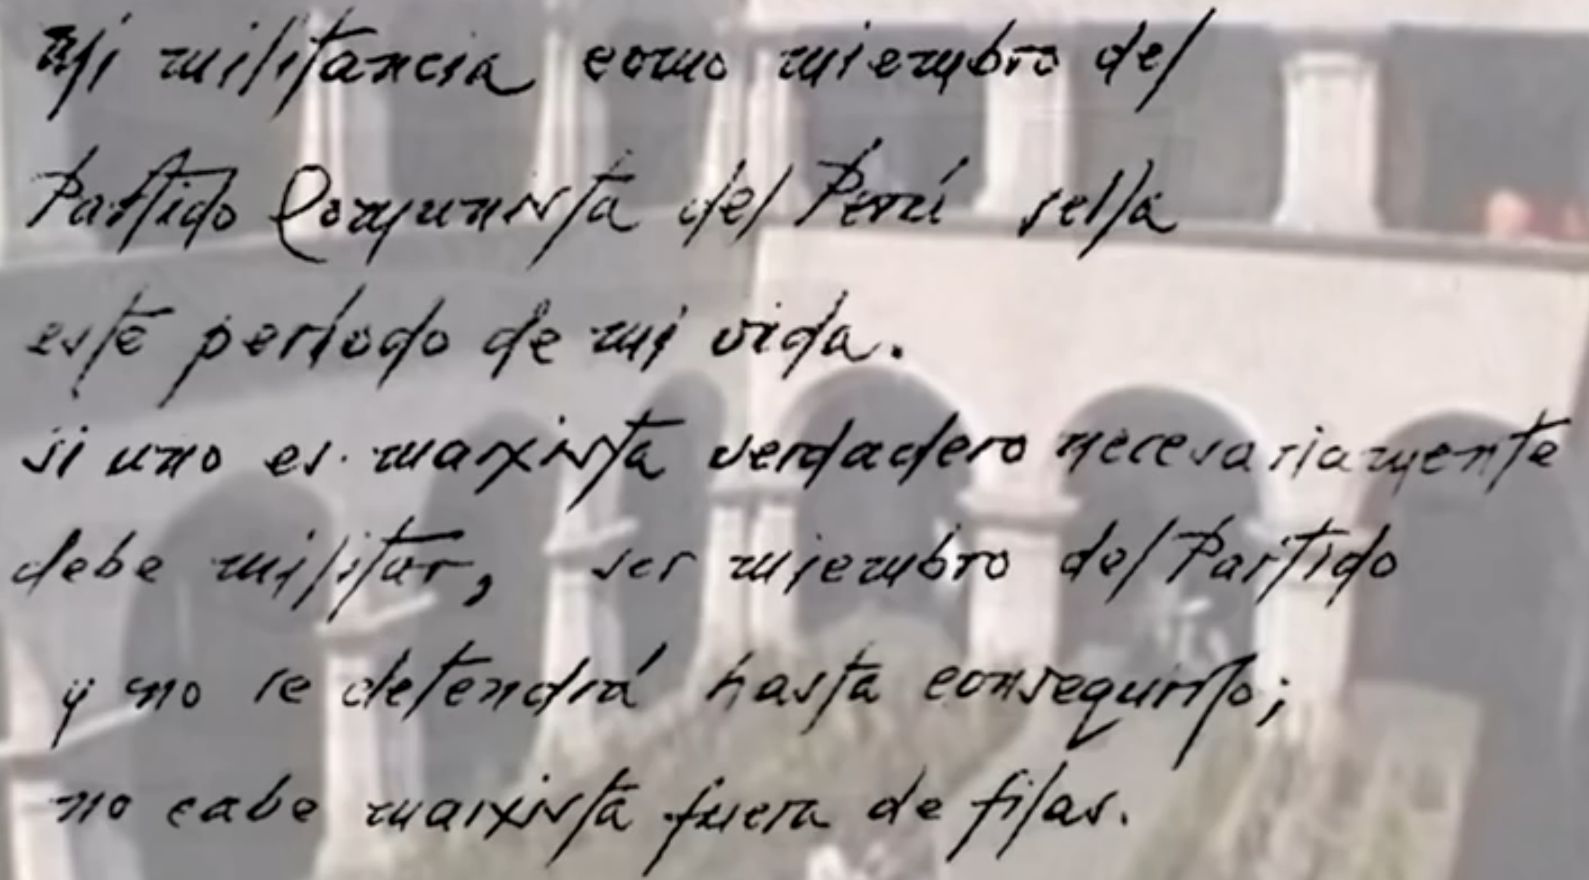 Mi militancia como miembro del
Partido Comunista del Perú sella
este período de mi vida.
si uno es marxista verdadero necesariamente
debe militar, ser miembro del Partido
y no se detendrá hasta conseguirlo;
no cabe marxista fuera de filas.